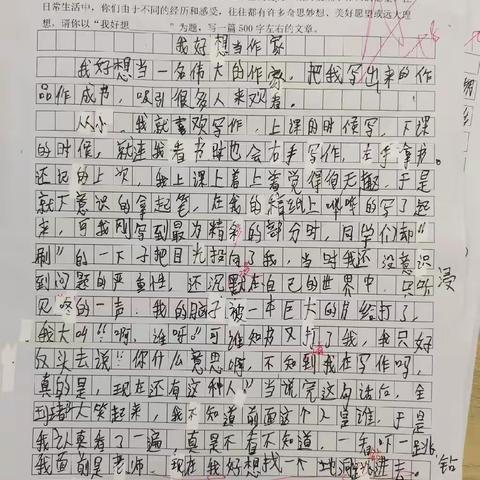 日常生活中,你们由于不同的经历和感受,往往都有许多奇思妙想、美好愿望或远大理
想,请你以“我好想 ”为题,写一篇500字左右的文章。
我好想当作家
我好想当一名伟大的作家,把我写出来的作
品作成书,吸引很多人来观看。
从小,我就喜欢写作,上课的时候写,下课
的时候,就连我看书时也会右手写作,左手拿书。
还记的上次,我上课上着上着觉得伯无趣,于是
就下意识的拿起笔,在我的稿纸上哗哗的写了起
来,可我刚写到最为精彩的部分时,同学们却“
刷”的一下子把目光投向了我,当时我还没意识
到问题的严重性,还沉默在自己的世界中,只听 浸
见咚的一声,我的脑子被一本巨大的书给打了,
我大叫“啊,谁呀”可谁知书又打了我,我只好
仅头去说“你什么意思啊,不知到我在写作吗,
真的是,现在还有这种人”当说完这句话后,全
班都大笑起来,我不知道前面这个人是谁,于是
我认真看了一遍,真是不看不知道,一看吓一跳
我面前是老师,现在我好想找一个地洞进去。 钻